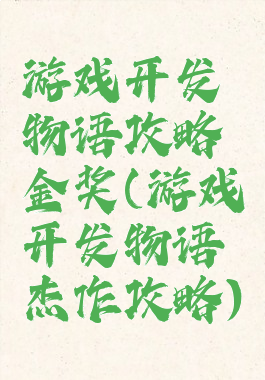 游戏开发
物语攻略
金奖(游戏
开发物语
杰作攻略)